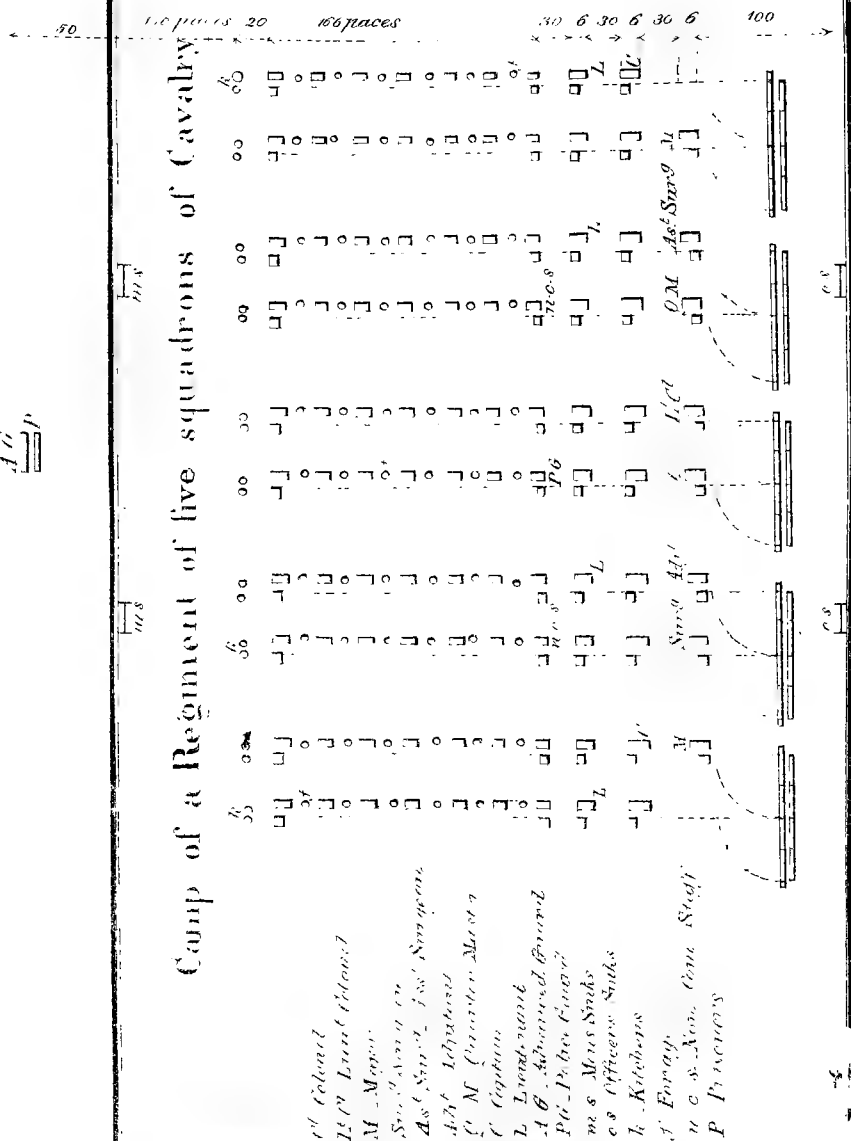 50
20
166 paces
30 6 30 6 30 6
100
Camp of a Regiment of five squadrons of Cavalry
A G
P
m s
m s
k
k
k
L
C
M
Ast Surg
QM
Lt Cl
Surg
Adjt
M
L
L
L
n.c.s
P G
n c s
o s
o s
Cl Colonel
Lt Cl Lieut Colonel
M Major
Surg Surgeon
Ast Surg Asst Surgeon
Adjt Adjutant
Q M Quarter Master
C Captain
L Lieutenant
A G Advanced Guard
P G Police Guard
m s Mens Sinks
o s Officers Sinks
k Kitchens
f Forage
n c s Non Com Staff
P Prisoners